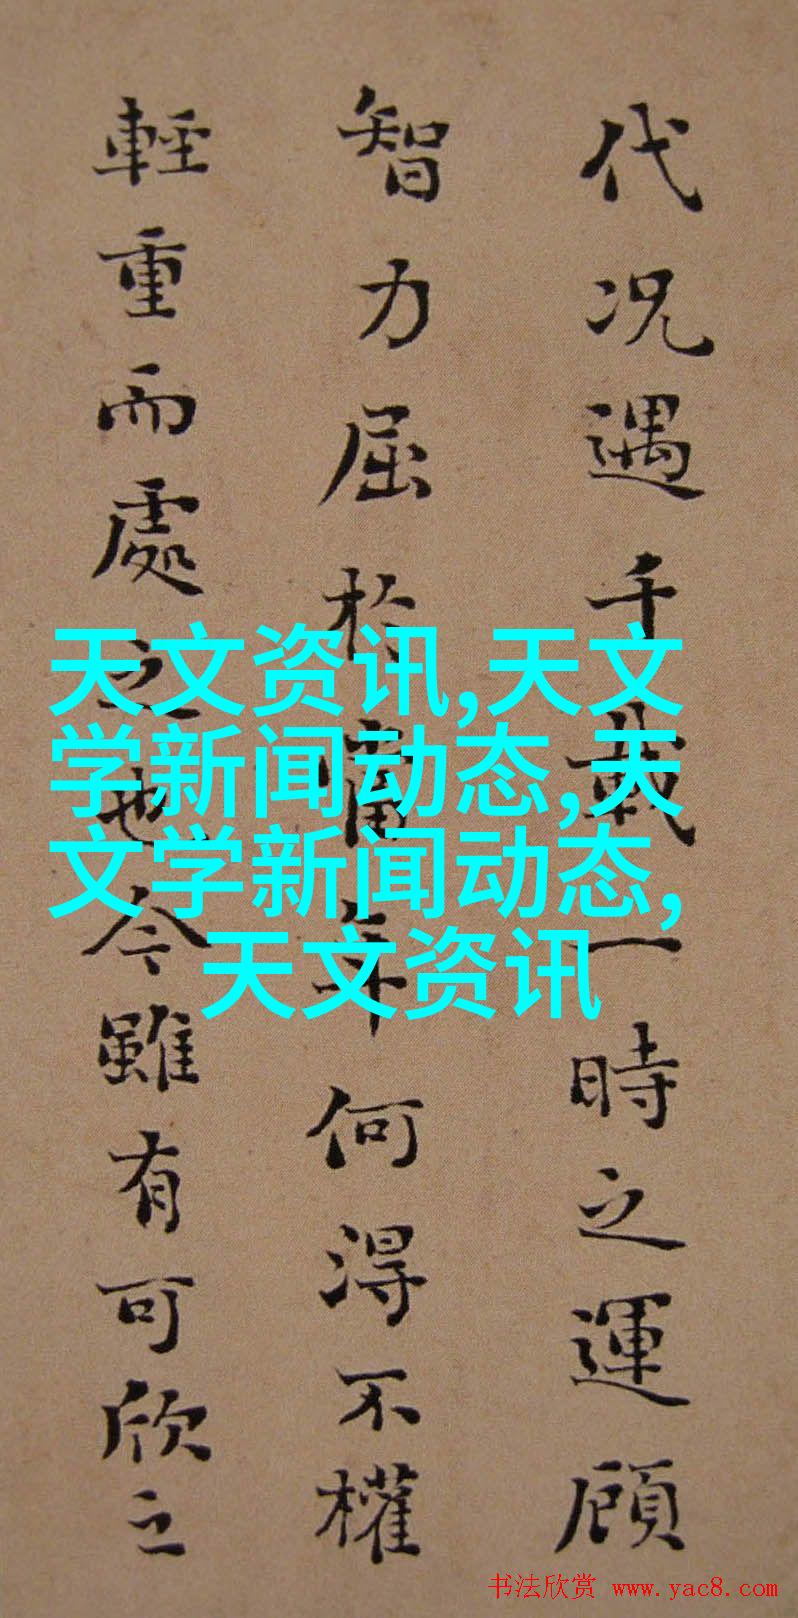 代况遇千載一時之運顧
智力屈於當年何得不權
輕重而處之也今雖有可欣之
天文资讯,天文
学新闻动态,天
文学新闻动态,
天文资讯
书法欣赏 www.yac8.com